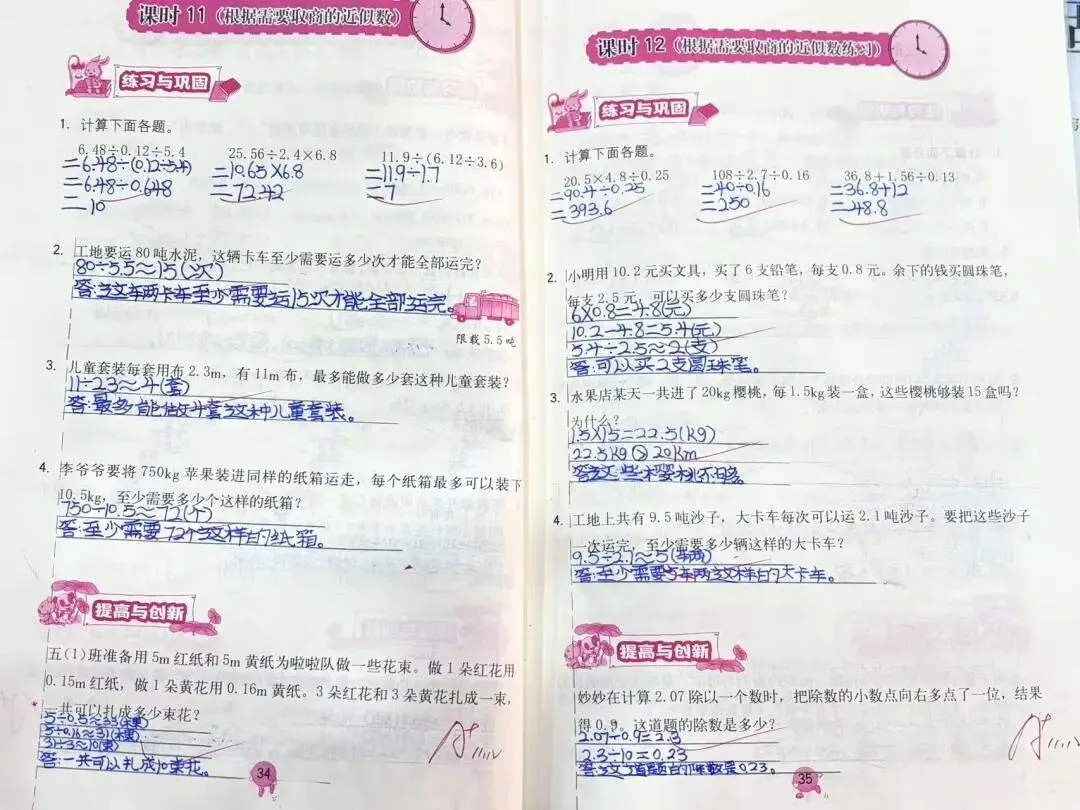 课时 11（根据需要取商的近似数）
练习与巩固
1. 计算下面各题。
6.48÷0.12÷5.4 25.56÷2.4×6.8 11.9÷(6.12÷3.6)
=6.48÷(0.12÷5.4) =10.65×6.8 =11.9÷1.7
=6.48÷0.648 =72.42 =7
=10
2. 工地要运80吨水泥，这辆卡车至少需要运多少次才能全部运完？
80÷5.5≈15(次)
答:这车两卡车至少需要运15次才能全部运完。
限载 5.5吨
3. 儿童套装每套用布 2.3m，有 11m 布，最多能做多少套这种儿童套装？
11÷2.3≈4(套)
答:最多能做4套这种儿童套装。
4. 李爷爷要将 750kg 苹果装进同样的纸箱运走，每个纸箱最多可以装下
10.5kg，至少需要多少个这样的纸箱？
750÷10.5≈72(个)
答:至少需要72个这样的纸箱。
提高与创新
五(1)班准备用 5m 红纸和 5m 黄纸为啦啦队做一些花束。做 1 朵红花用
0.15m 红纸，做 1 朵黄花用 0.16m 黄纸。3 朵红花和 3 朵黄花扎成一束，
一共可以扎成多少束花？
5÷0.5≈33(朵)
5÷0.16≈31(朵)
31÷3≈10(束)
答:一共可以扎成10束花。
34
课时 12（根据需要取商的近似数练习）
练习与巩固
1. 计算下面各题。
20.5×4.8÷0.25 108÷2.7÷0.16 36.8+1.56÷0.13
=90.4÷0.25 =40÷0.16 =36.8+12
=393.6 =250 =48.8
2. 小明用 10.2 元买文具，买了 6 支铅笔，每支 0.8 元。余下的钱买圆珠笔，
每支 2.5 元，可以买多少支圆珠笔？
6×0.8=4.8(元)
10.2-4.8=5.4(元)
5.4÷2.5≈2(支)
答:可以买2支圆珠笔。
3. 水果店某天一共进了 20kg 樱桃，每 1.5kg 装一盒，这些樱桃够装 15 盒吗？
为什么？
1.5×15=22.5(kg)
22.5kg>20Km
答:这些樱桃不够。
4. 工地上共有 9.5 吨沙子，大卡车每次可以运 2.1 吨沙子。要把这些沙子
一次运完，至少需要多少辆这样的大卡车？
9.5÷2.1≈5(辆)
答:至少需要5车两这样的大卡车。
提高与创新
妙妙在计算 2.07 除以一个数时，把除数的小数点向右多点了一位，结果
得 0.9。这道题的除数是多少？
2.07÷0.9=2.3
2.3÷10=0.23
答:这道题的除数是0.23。
35